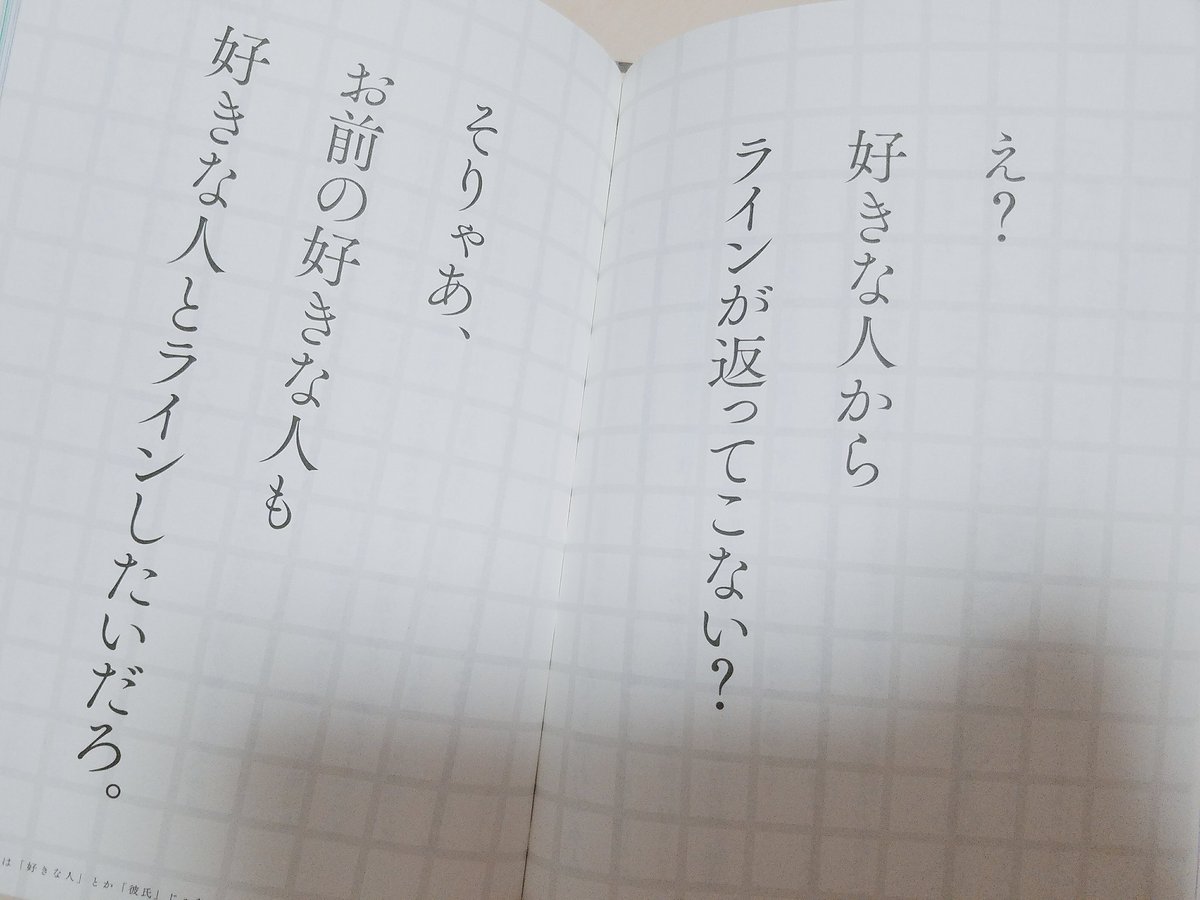 え？
好きな人から
ラインが返ってこない？
そりゃあ、
お前の好きな人も
好きな人とラインしたいだろ。
は「好きな人」とか「彼氏」